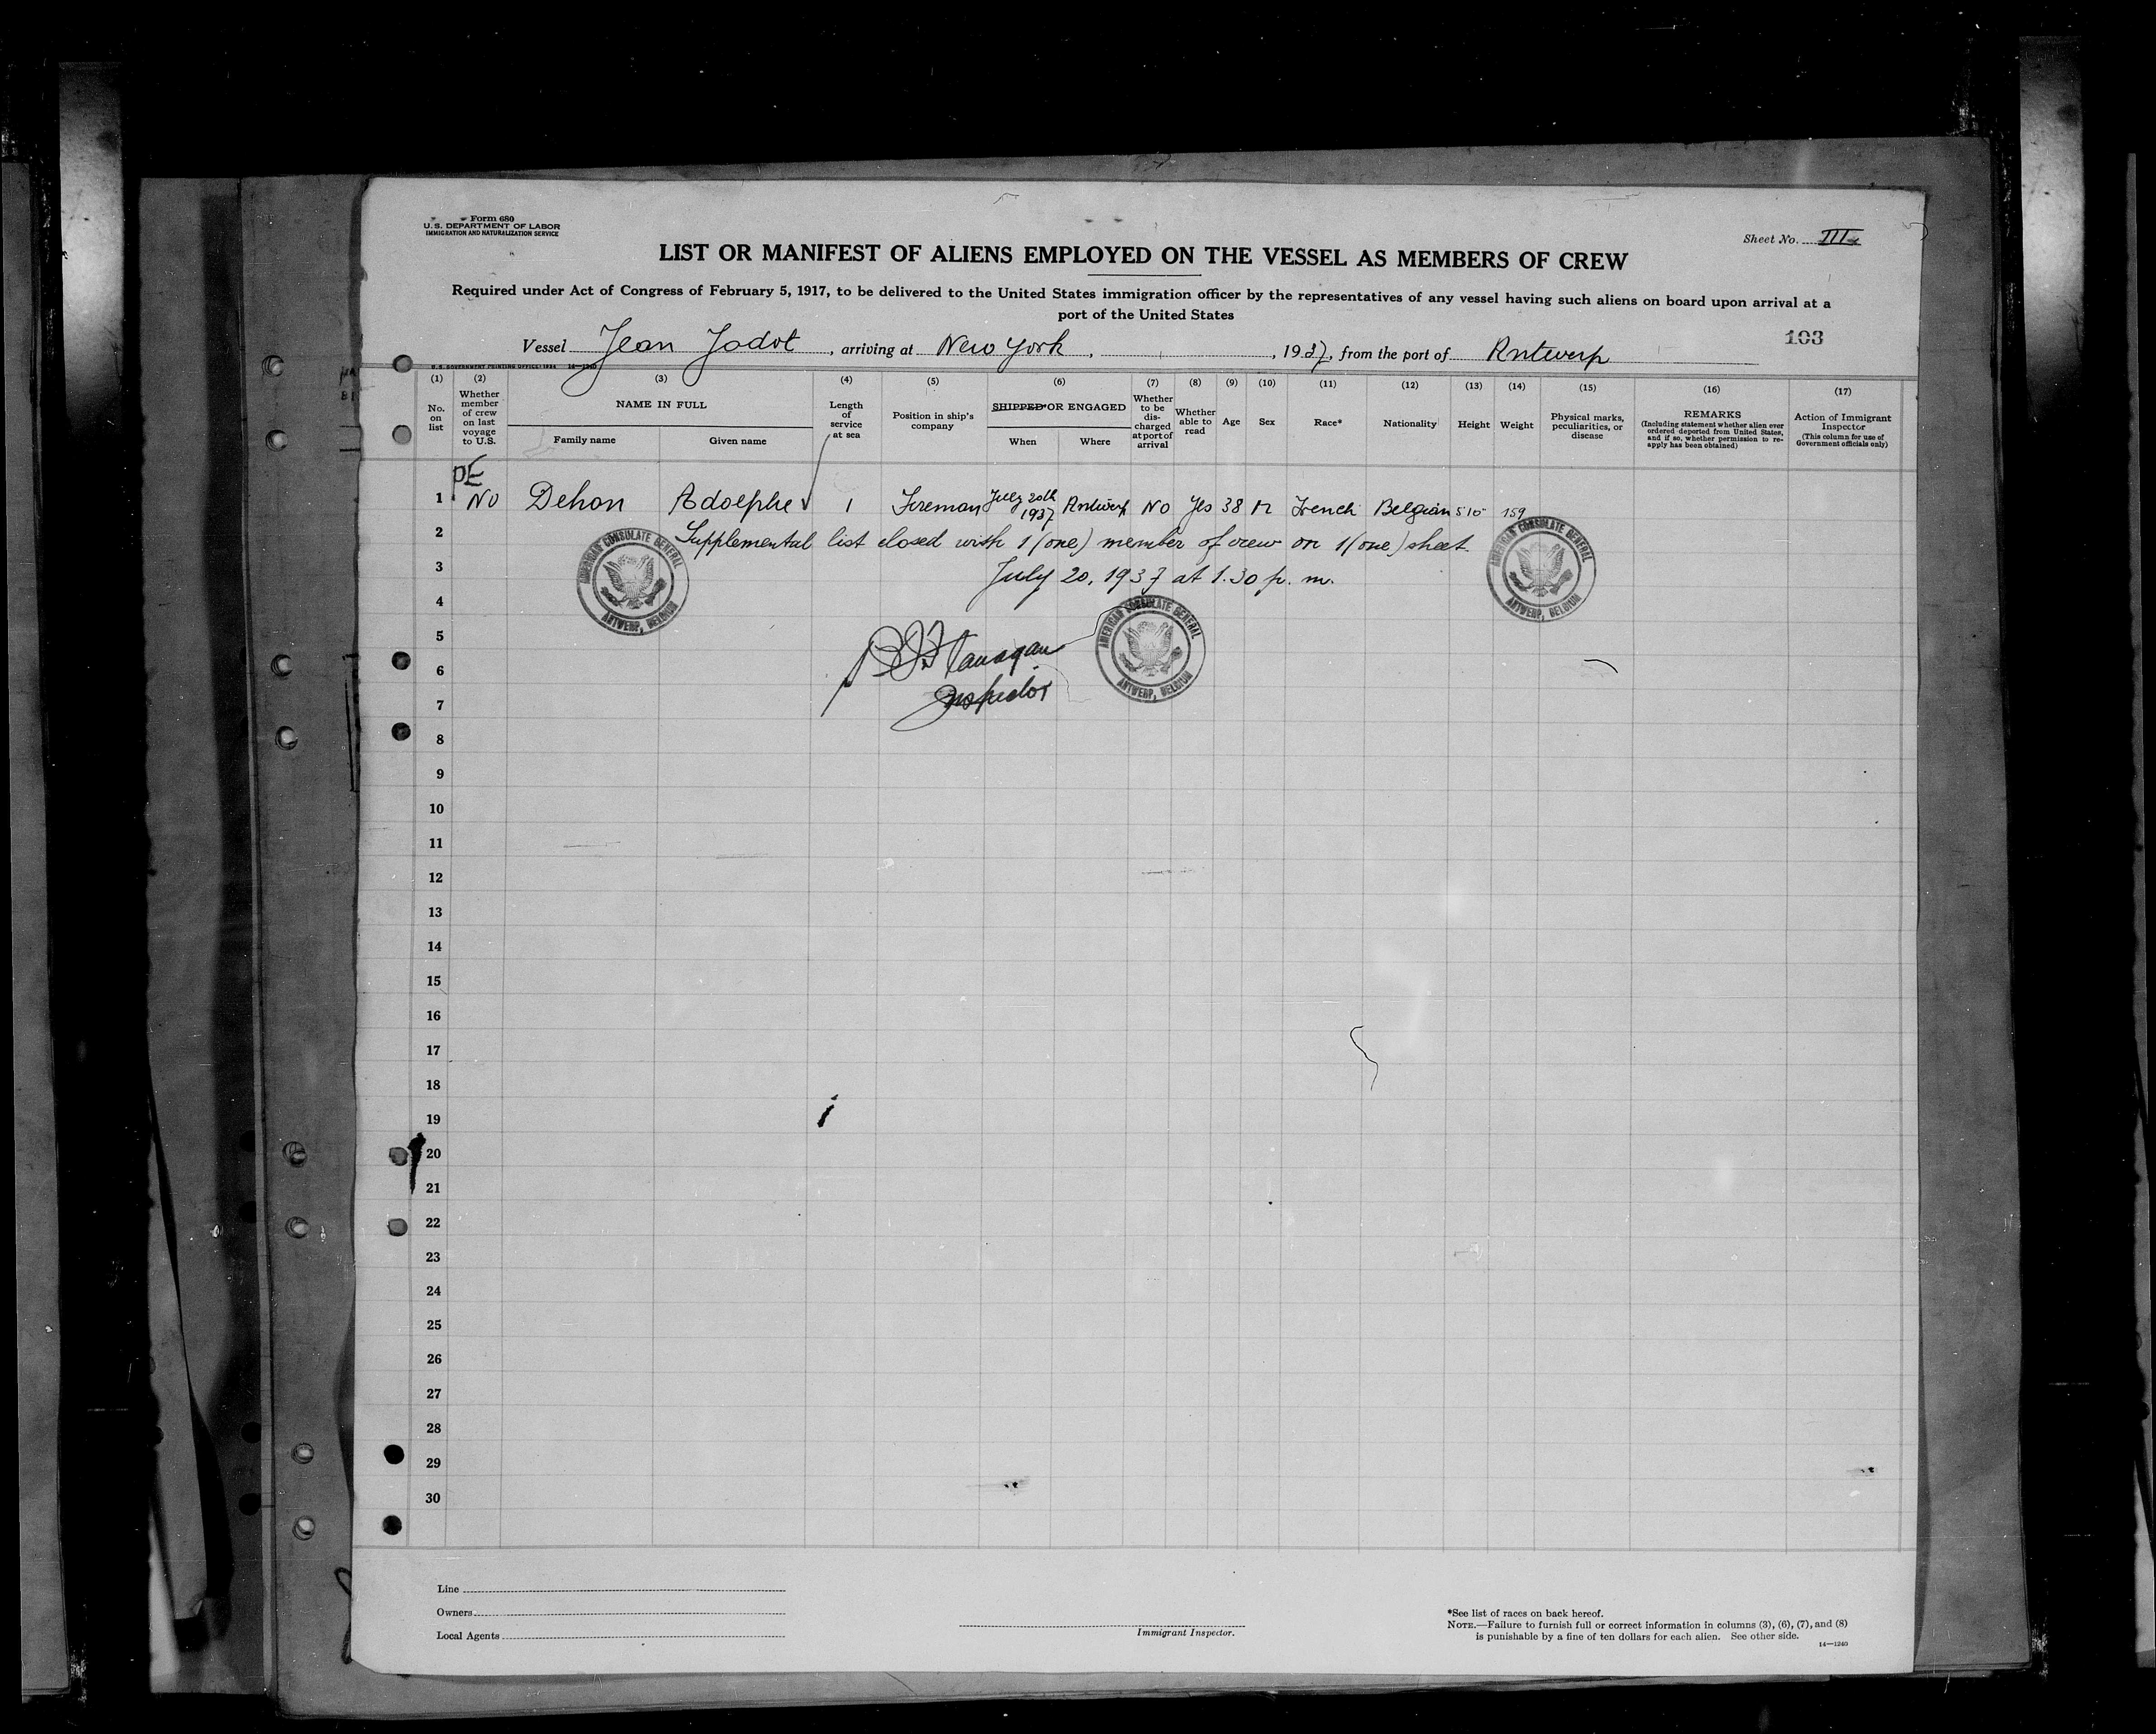 Form 680
U. S. DEPARTMENT OF LABOR
IMMIGRATION AND NATURALIZATION SERVICE
Sheet No. III
LIST OR MANIFEST OF ALIENS EMPLOYED ON THE VESSEL AS MEMBERS OF CREW
Required under Act of Congress of February 5, 1917, to be delivered to the United States immigration officer by the representatives of any vessel having such aliens on board upon arrival at a
port of the United States
103
Vessel Jean Jadot, arriving at New York, , 1937, from the port of Antwerp
U. S. GOVERNMENT PRINTING OFFICE: 1934 14—1240
(1) (2) (3) (4) (5) (6) (7) (8) (9) (10) (11) (12) (13) (14) (15) (16) (17)
No. on list
Whether member of crew on last voyage to U.S.
NAME IN FULL
Family name
Given name
Length of service at sea
Position in ship's company
SHIPPED OR ENGAGED
When
Where
Whether to be discharged at port of arrival
Whether able to read
Age
Sex
Race*
Nationality
Height
Weight
Physical marks, peculiarities, or disease
REMARKS
(Including statement whether alien ever ordered deported from United States, and if so, whether permission to reapply has been obtained)
Action of Immigrant Inspector
(This column for use of Government officials only)
PE
1 No Dehon Adolphe 1 Fireman July 20th 1937 Antwerp No Yes 38 M French Belgian 5'10" 159
2 Supplemental list closed with 1 (one) member of crew on 1 (one) sheet.
3 July 20, 1937 at 1.30 p. m.
AMERICAN CONSULATE GENERAL
ANTWERP, BELGIUM
AMERICAN CONSULATE GENERAL
ANTWERP, BELGIUM
4
AMERICAN CONSULATE GENERAL
ANTWERP, BELGIUM
5
6 Flanagan
7 Inspector
8
9
10
11
12
13
14
15
16
17
18
19
20
21
22
23
24
25
26
27
28
29
30
Line
Owners
Local Agents
Immigrant Inspector.
*See list of races on back hereof.
NOTE.—Failure to furnish full or correct information in columns (3), (6), (7), and (8)
is punishable by a fine of ten dollars for each alien. See other side.
14—1240